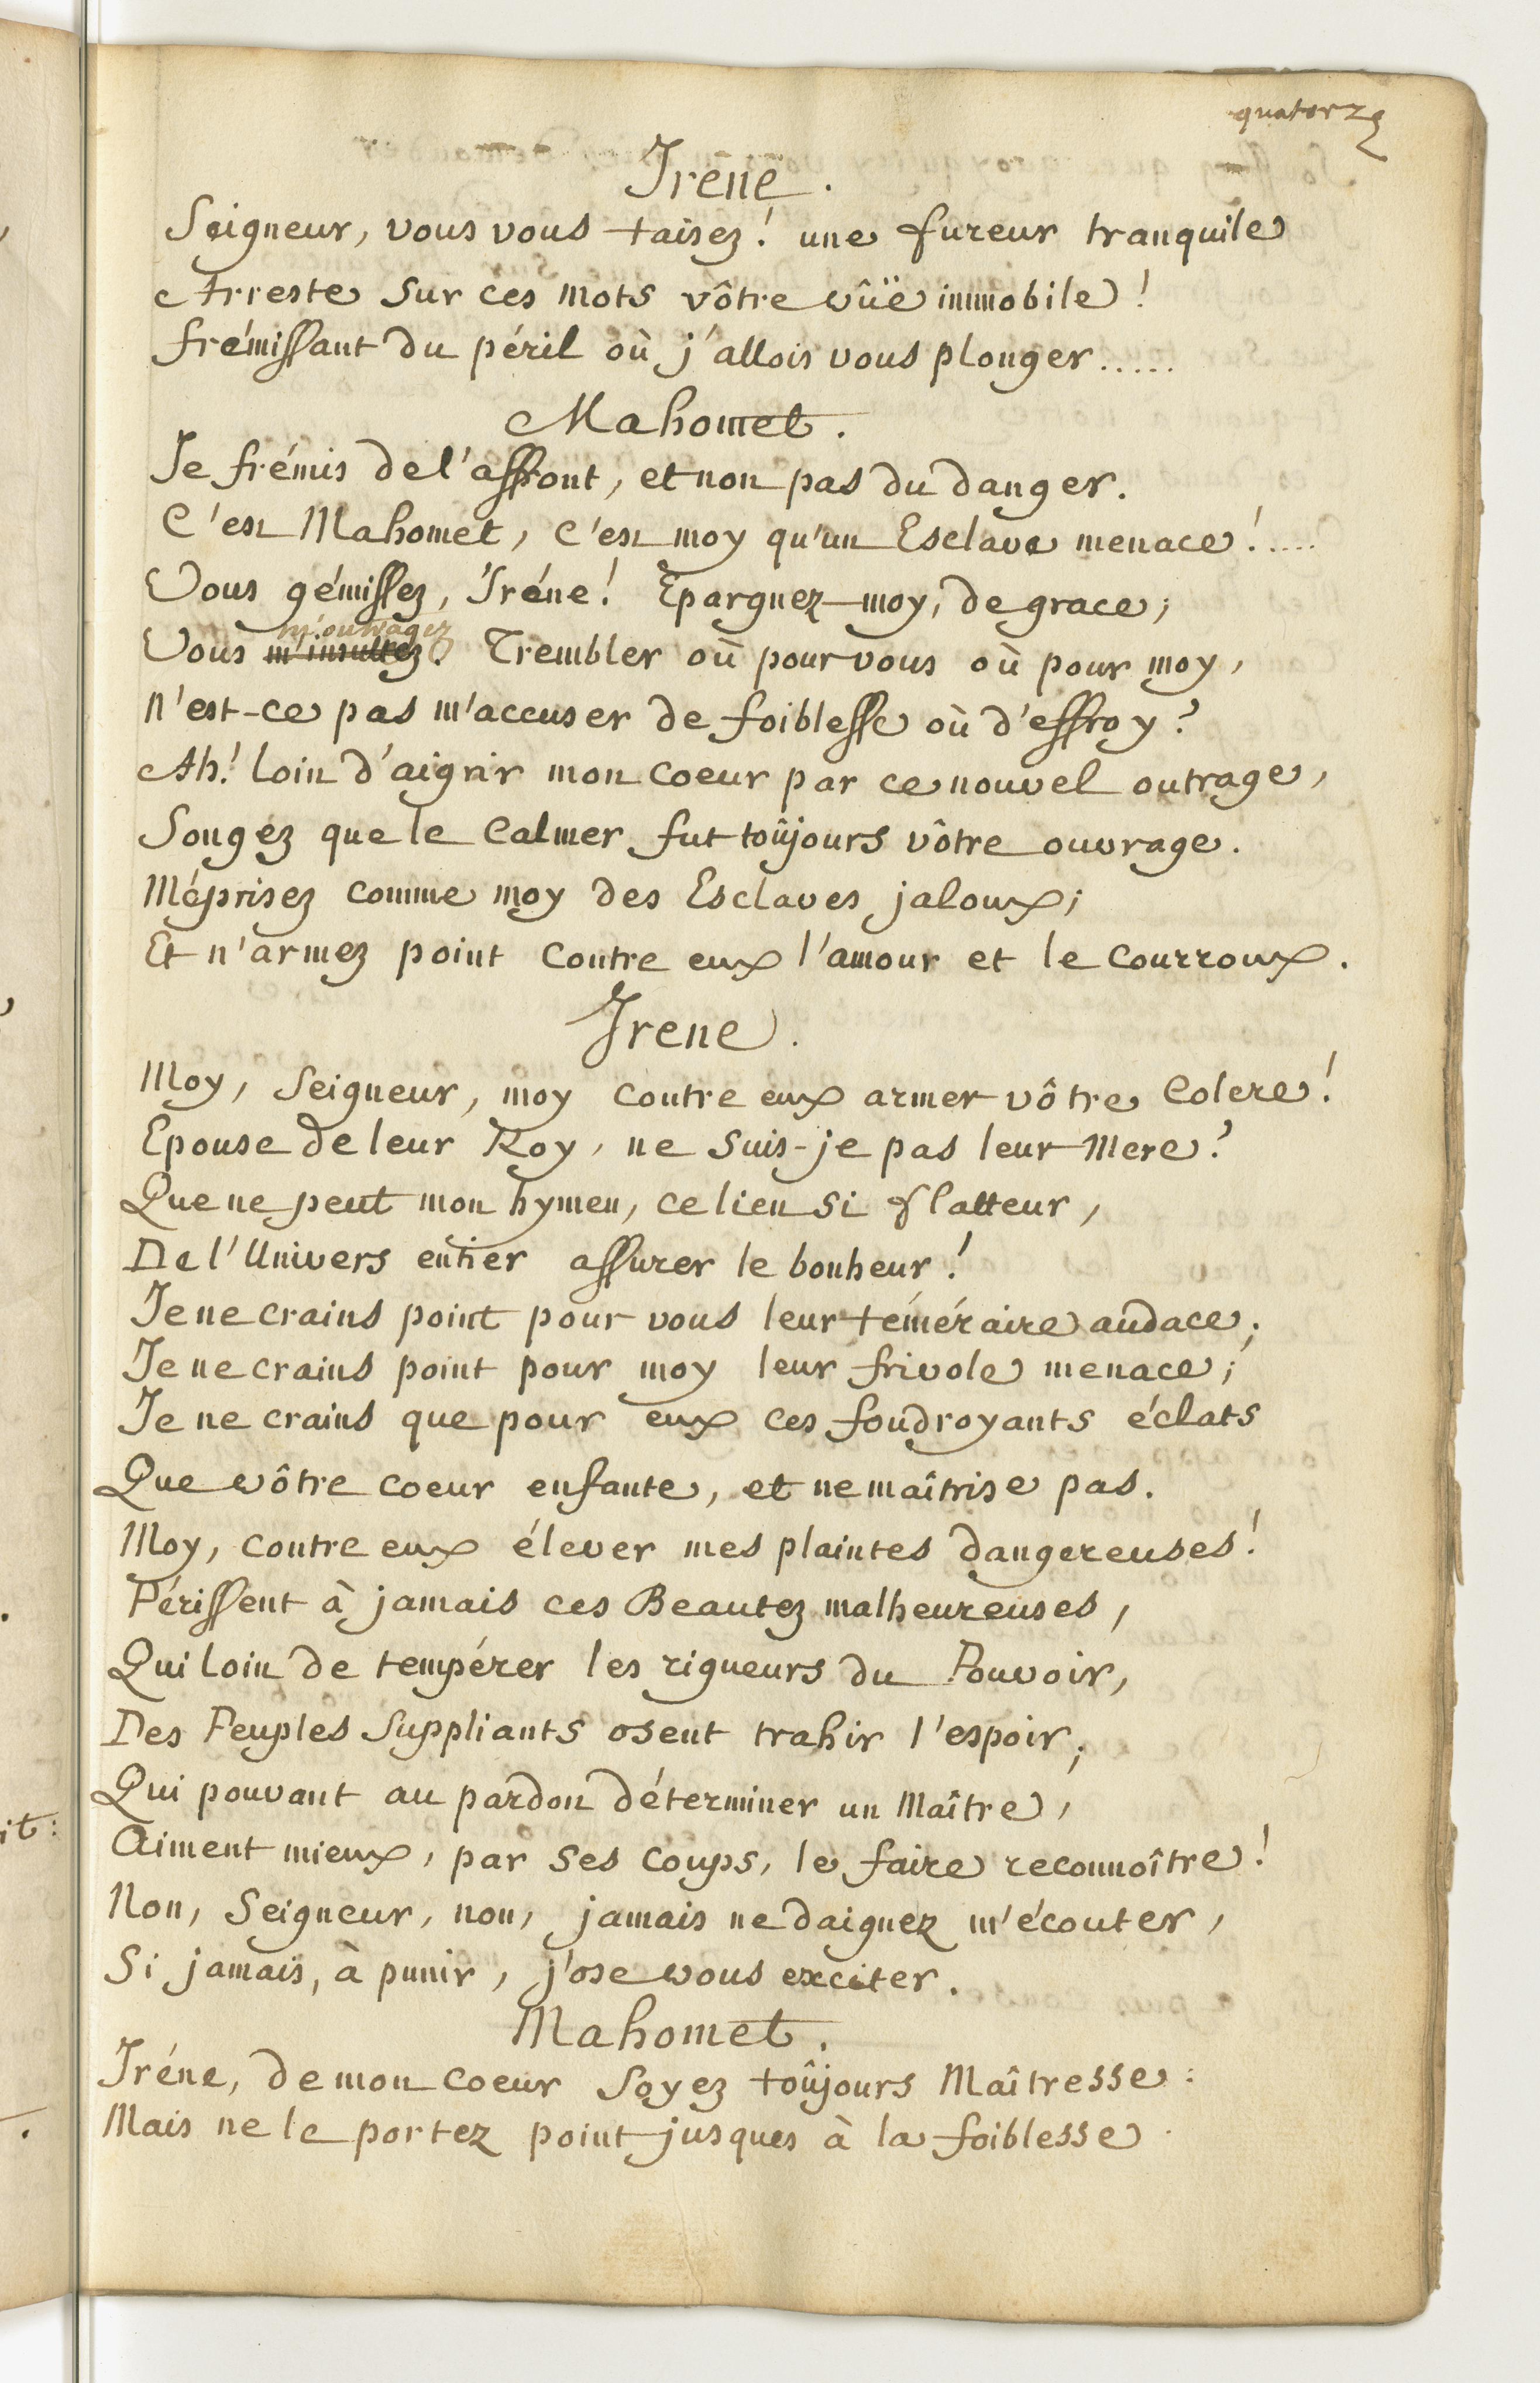 quatorze
Iréne.
Seigneur, vous vous taisez! une fureur tranquile
Arreste sur ces mots vôtre vûë immobile!
frémissant du péril où j'allois vous plonger.....
Mahomet.
Je frémis de l'affront, et non pas du danger.
C'est Mahomet, c'est moy qu'un Esclave menace!.....
Vous gémissez, Iréne! Epargnez-moy, de grace;
m'outragez
Vous m'insultez. Trembler où pour vous où pour moy,
N'est-ce pas m'accuser de foiblesse où d'effroy?
Ah! loin d'aigrir mon coeur par ce nouvel outrage,
Songez que le calmer fut toûjours vôtre ouvrage.
Méprisez comme moy des Esclaves jaloux;
Et n'armez point contre eux l'amour et le courroux.
Irene.
Moy, Seigneur, moy contre eux armer vôtre colere!
Epouse de leur Roy, ne suis-je pas leur Mere?
Que ne peut mon hymen, ce lien si flatteur,
De l'Univers entier assurer le bonheur!
Je ne crains point pour vous leur téméraire audace;
Je ne crains point pour moy leur frivole menace;
Je ne crains que pour eux ces foudroyants éclats
Que vôtre coeur enfante, et ne maîtrise pas.
Moy, contre eux élever mes plaintes dangereuses!
Périssent à jamais ces Beautez malheureuses,
Qui loin de tempérer les rigueurs du Pouvoir,
Des Peuples suppliants osent trahir l'espoir;
Qui pouvant au pardon déterminer un Maître,
Aiment mieux, par ses coups, le faire reconnoître!
Non, Seigneur, non, jamais ne daignez m'écouter,
Si jamais, à punir, j'ose vous exciter.
Mahomet.
Iréne, de mon coeur soyez toûjours Maîtresse:
Mais ne le portez point jusques à la foiblesse.
it: